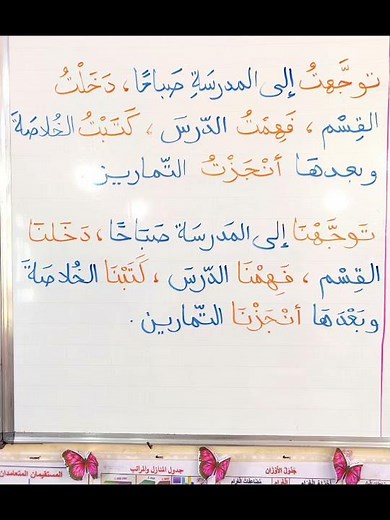 توجَّهتُ إلى المدرسَةِ صَباحًا، دَخَلْتُ
القِسْم ، فَهِمْتُ الدّرسَ ، كَتَبْتُ الخُلاصَةَ
وبعدهَا أنْجَزْتُ التّمارين.
تَوجَّهْنَا إلى المَدرسَةِ صَبَاحًا ، دَخَلنَا
القِسْم ، فَهِمْنَا الدَّرسَ ، كَتَبْنَا الخُلاصَةَ
وبَعْدَهَا أنْجَزْنَا التّمارين .
جدول المنازل والمراتب
جدول الأوزان
المستقيمان المتعامدان